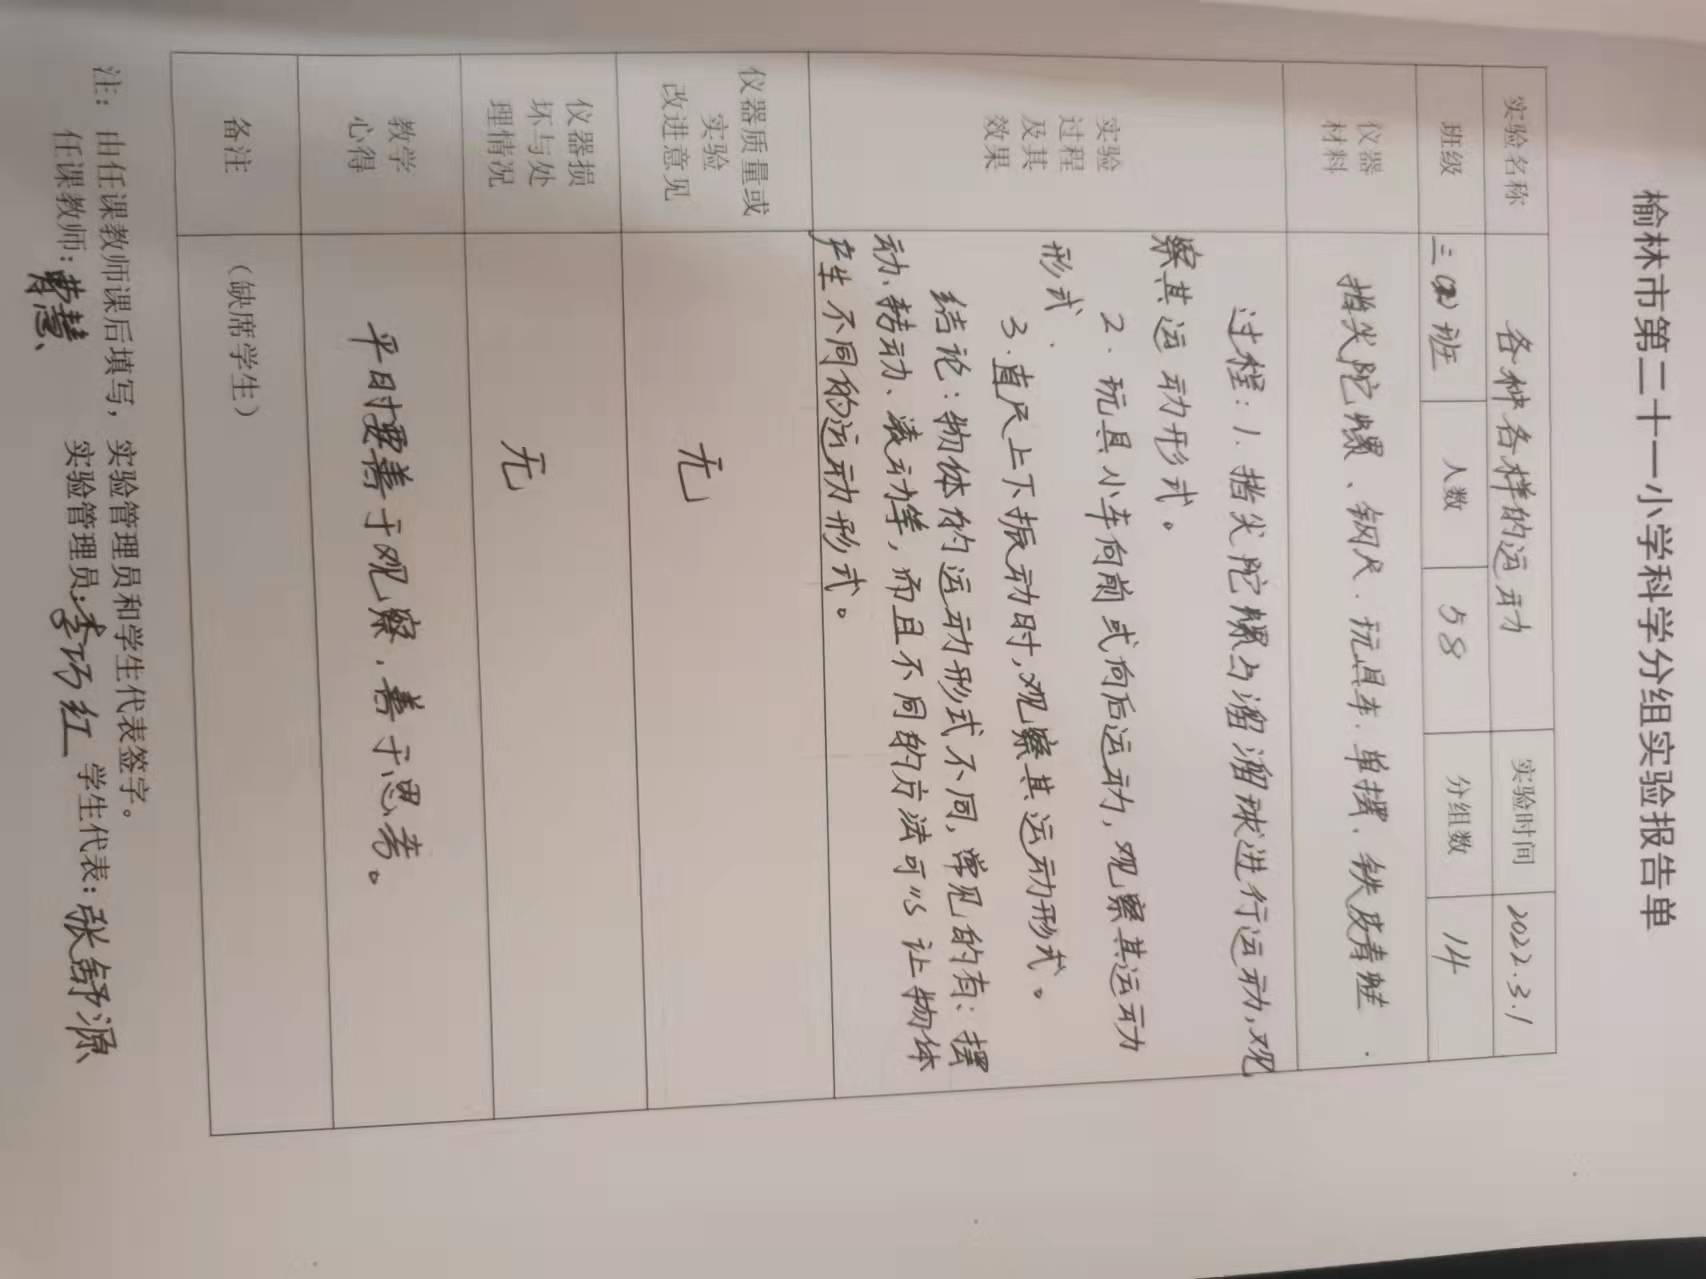 榆林市第二十一小学科学分组实验报告单
实验名称 各种各样的运动 实验时间 2022.3.1
班级 三(2)班 人数 58 分组数 14
仪器
材料
指尖陀螺、钢尺、玩具车、单摆、铁皮青蛙.
实验
过程
及其
效果
过程：1.指尖陀螺与溜溜球进行运动,观
察其运动形式。
2.玩具小车向前或向后运动,观察其运动
形式.
3.直尺上下振动时,观察其运动形式。
结论：物体的运动形式不同,常见的有：摆
动、转动、滚动等,而且不同的方法可以让物体
产生不同的运动形式。
仪器质量或
实验
改进意见
无
仪器损
坏与处
理情况
无
教学
心得
平时要善于观察,善于思考。
备注
（缺席学生）
注： 由任课教师课后填写，实验管理员和学生代表签字。
任课教师: 曹慧 实验管理员:李巧红 学生代表:张舒源